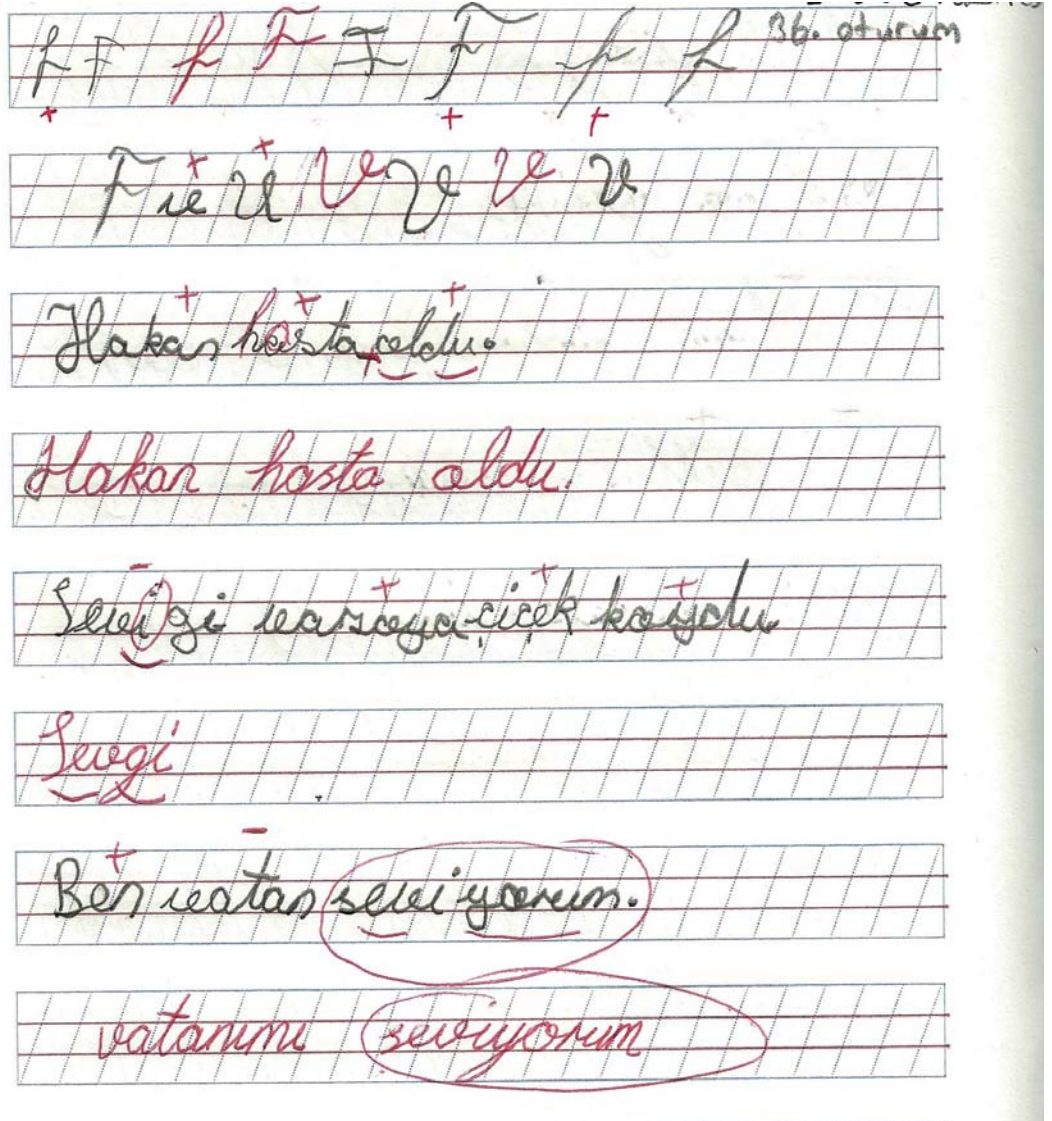 36. oturum
f F f F F F f f
F ve V V V V V
Hakan hasta oldu.
Hakan hasta oldu.
Sevigi vazoya çiçek koydu
Sevgi
Ben vatan seviyorum.
vatanımı seviyorum